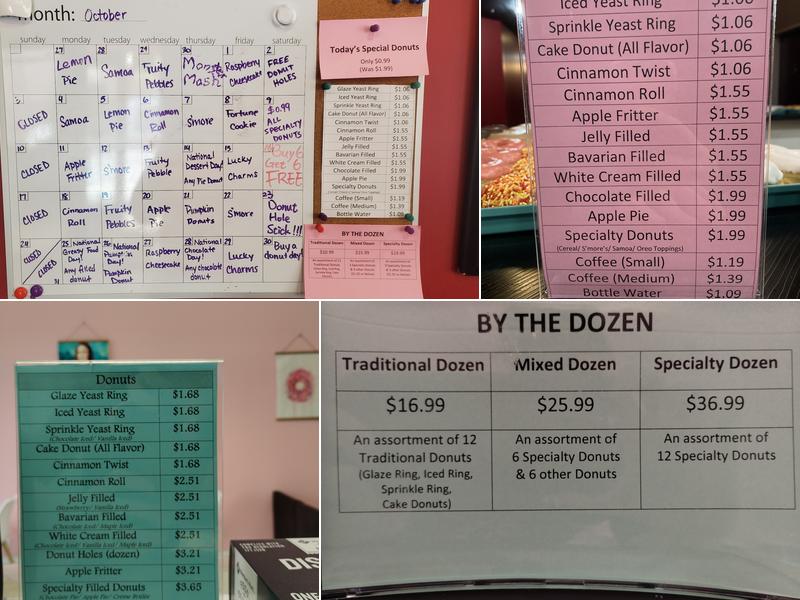 month: October
sunday monday tuesday wednesday thursday friday saturday
27 Lemon Pie
28 Samoa
29 Fruity Pebbles
30 Monster Mash
1 Raspberry Cheesecake
2 FREE DONUT HOLES
3 CLOSED
4 Samoa
5 Lemon Pie
6 Cinnamon Roll
7 S'more
8 Fortune Cookie
9 $0.99 ALL SPECIALTY DONUTS
10 CLOSED
11 Apple Fritter
12 S'more
13 Fruity Pebbles
14 National Dessert Day! Any Pie Donut
15 Lucky Charms
16 Buy 6 Get 6 FREE
17 CLOSED
18 Cinnamon Roll
19 Fruity Pebbles
20 Apple Pie
21 Pumpkin Donuts
22 S'more
23 Donut Hole Stick!!!
24 CLOSED
31 CLOSED
25 National Greasy Food Day! Any filled donut
26 National Pumpkin Day! Pumpkin Donut
27 Raspberry Cheesecake
28 National Chocolate Day! Any chocolate donut
29 Lucky Charms
30 Buy a donut day!
Today's Special Donuts
Only $0.99
(Was $1.99)
Glaze Yeast Ring $1.06
Iced Yeast Ring $1.06
Sprinkle Yeast Ring $1.06
Cake Donut (All Flavor) $1.06
Cinnamon Twist $1.06
Cinnamon Roll $1.55
Apple Fritter $1.55
Jelly Filled $1.55
Bavarian Filled $1.55
White Cream Filled $1.55
Chocolate Filled $1.99
Apple Pie $1.99
Specialty Donuts $1.99
Coffee (Small) $1.19
Coffee (Medium) $1.39
Bottle Water $1.09
BY THE DOZEN
Traditional Dozen Mixed Dozen Specialty Dozen
Iced Yeast Ring $1.06
Sprinkle Yeast Ring $1.06
Cake Donut (All Flavor) $1.06
Cinnamon Twist $1.06
Cinnamon Roll $1.55
Apple Fritter $1.55
Jelly Filled $1.55
Bavarian Filled $1.55
White Cream Filled $1.55
Chocolate Filled $1.99
Apple Pie $1.99
Specialty Donuts $1.99
(Cereal/ S'more's/ Samoa/ Oreo Toppings)
Coffee (Small) $1.19
Coffee (Medium) $1.39
Bottle Water $1.09
Donuts
Glaze Yeast Ring $1.68
Iced Yeast Ring $1.68
Sprinkle Yeast Ring $1.68
(Chocolate Iced/ Vanilla Iced)
Cake Donut (All Flavor) $1.68
Cinnamon Twist $1.68
Cinnamon Roll $2.51
Jelly Filled $2.51
(Strawberry/ Vanilla Iced)
Bavarian Filled $2.51
(Chocolate Iced/ Maple Iced)
White Cream Filled $2.51
(Chocolate Iced/ Vanilla Iced/ Maple Iced)
Donut Holes (dozen) $3.21
Apple Fritter $3.21
Specialty Filled Donuts $3.65
(Chocolate Pie/ Apple Pie/ Creme Brulee
BY THE DOZEN
Traditional Dozen Mixed Dozen Specialty Dozen
$16.99 $25.99 $36.99
An assortment of 12 Traditional Donuts (Glaze Ring, Iced Ring, Sprinkle Ring, Cake Donuts)
An assortment of 6 Specialty Donuts & 6 other Donuts
An assortment of 12 Specialty Donuts